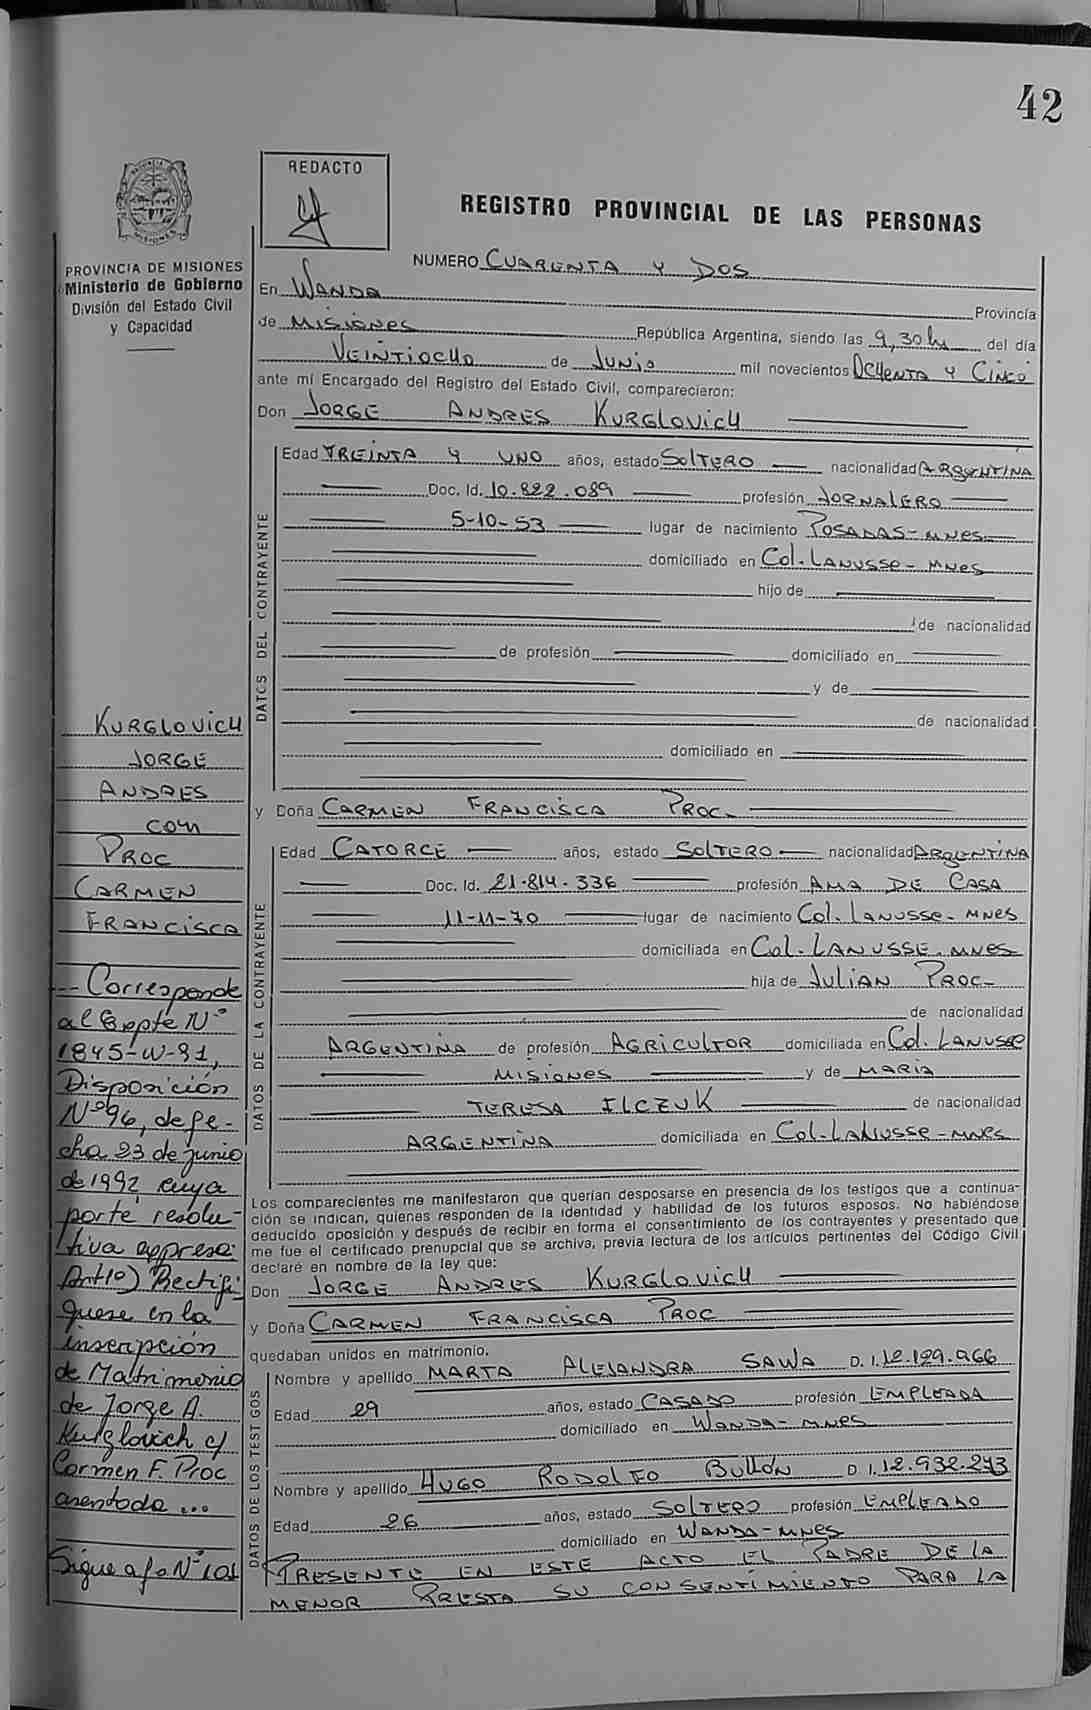 42
REDACTO
REGISTRO PROVINCIAL DE LAS PERSONAS
PROVINCIA DE MISIONES
Ministerio de Gobierno
División del Estado Civil
y Capacidad
NUMERO CUARENTA Y DOS
En WANDA Provincia
de MISIONES República Argentina, siendo las 9,30 hs del día
VEINTIOCHO de JUNIO mil novecientos OCHENTA Y CINCO
ante mí Encargado del Registro del Estado Civil, comparecieron:
Don JORGE ANDRES KURGLOVICH
DATOS DEL CONTRAYENTE
Edad TREINTA Y UNO años, estado SOLTERO nacionalidad ARGENTINA
Doc. Id. 10.822.089 profesión JORNALERO
5-10-53 lugar de nacimiento POSADAS-MNES
domiciliado en COL. LANUSSE-MNES
hijo de
de nacionalidad
de profesión domiciliado en
y de
de nacionalidad
domiciliado en
y Doña CARMEN FRANCISCA PROC
DATOS DE LA CONTRAYENTE
Edad CATORCE años, estado SOLTERO nacionalidad ARGENTINA
Doc. Id. 21.814.336 profesión AMA DE CASA
11-11-70 lugar de nacimiento COL. LANUSSE-MNES
domiciliada en COL. LANUSSE-MNES
hija de JULIAN PROC
de nacionalidad
ARGENTINA de profesión AGRICULTOR domiciliada en COL. LANUSSE
MISIONES y de MARIA
TERESA ILCZUK de nacionalidad
ARGENTINA domiciliada en COL-LANUSSE-MNES
Los comparecientes me manifestaron que querían desposarse en presencia de los testigos que a continua-
ción se indican, quienes responden de la identidad y habilidad de los futuros esposos. No habiéndose
deducido oposición y después de recibir en forma el consentimiento de los contrayentes y presentado que
me fue el certificado prenupcial que se archiva, previa lectura de los artículos pertinentes del Código Civil
declaré en nombre de la ley que:
Don JORGE ANDRES KURGLOVICH
y Doña CARMEN FRANCISCA PROC
quedaban unidos en matrimonio.
DATOS DE LOS TESTIGOS
Nombre y apellido MARTA ALEJANDRA SAWA D.I. 12.129.966
Edad 29 años, estado CASADO profesión EMPLEADA
domiciliado en WANDA-MNES
Nombre y apellido HUGO RODOLFO BULLÓN D.I. 12.932.293
Edad 26 años, estado SOLTERO profesión EMPLEADO
domiciliado en WANDA-MNES
PRESENTE EN ESTE ACTO EL PADRE DE LA
MENOR PRESTA SU CONSENTIMIENTO PARA LA
KURGLOVICH
JORGE
ANDRES
con
PROC
CARMEN
FRANCISCA
-- Corresponde
al Expte Nº
1845-W-91,
Disposición
Nº 96, de fe-
cha 23 de junio
de 1992, cuya
parte resolu-
tiva expresa:
Art 1º) Rectifí-
quese en la
inscripción
de Matrimonio
de Jorge A.
Kurglovich c/
Carmen F. Proc
asentada ...
Sigue a fo Nº 101